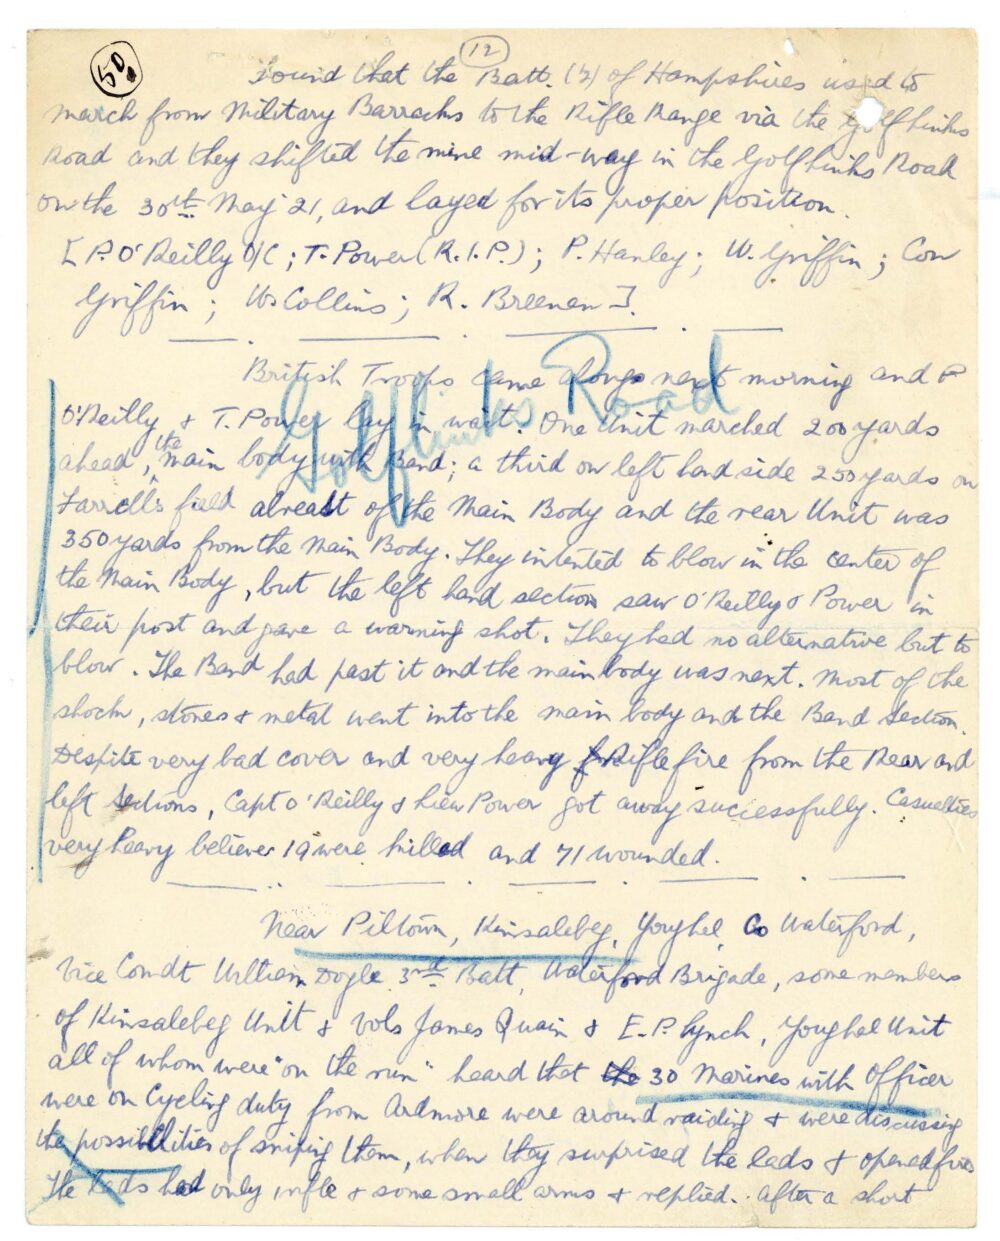 50.
12
Found that the Batt. (2) of Hampshires used to
march from Military Barracks to the Rifle Range via the Golflinks
Road and they shifted the mine mid-way in the Golflinks Road
on the 30th May 21, and layed for its proper position.
[P. O'Reilly O/C; T. Power (R.I.P.); P. Hanley; W. Griffin; Con
Griffin; Ws Collins; R. Breenen].
British Troops came along next morning and P
O'Reilly & T. Power lay in wait. One Unit marched 200 yards
ahead, the main body with Band; a third on left hand side 250 yards on
Farrell's field abreast of the Main Body and the rear Unit was
350 yards from the Main Body. They intented to blow in the center of
the Main Body, but the left hand section saw O'Reilly & Power in
their post and gave a warning shot. They had no alternative but to
blow. The Band had past it and the main body was next. Most of the
shock, stones & metal went into the main body and the Band Section.
Despite very bad cover and very heavy Rifle fire from the Rear and
left Sections, Capt O'Reilly & Lieu Power got away sucessfully. Casualties
very heavy believe 19 were killed and 71 wounded.
Golflinks Road
Near Piltown, Kinsalebeg, Youghal, Co Waterford,
Vice Comdt William Doyle 3rd Batt, Waterford Brigade, some members
of Kinsalebeg Unit & Vols James Quain & E. P. Lynch, Youghal Unit
all of whom were "on the run" heard that the 30 Marines with Officer
were on Cycling duty from Ardmore were around raiding & were discussing
the possiblities of sniping them, when they surprised the lads & opened fire
The Lads had only rifle & some small arms & replied. After a short